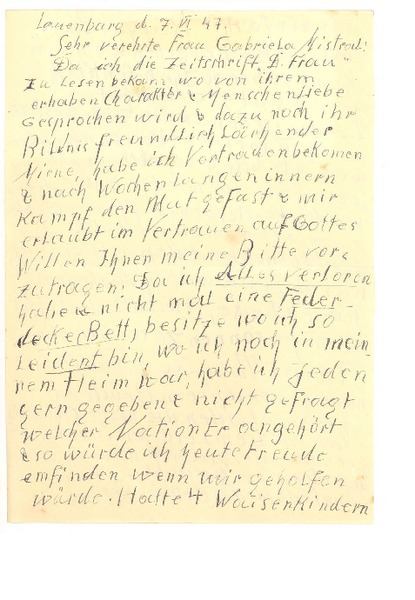 Lauenburg d. 7. VI 47.
Sehr verehrte Frau Gabriela Mistral!
Da ich die Zeitschrift „D. Frau"
zu lesen bekam wo von ihrem
erhaben Charakter & Menschenliebe
gesprochen wird & dazu noch ihr
Bildnis freundlich lächender
Miene, habe ich Vertrauen bekomen
& nach Wochenlangen innern
Kampf den Mut gefast & mir
erlaubt im Vertrauen auf Gottes
Willen Ihnen meine Bitte vor-
zutragen. Da ich Alles verloren
habe & nicht mal eine Feder-
decke Bett, besitze wo ich so
leident bin, wo ich noch in mein-
nem Heim war, habe ich jeden
gern gegeben & nicht gefragt
welcher Nation Er angehört
& so würde ich heute freude
emfinden wenn mir geholfen
würde. Hatte 4 Waisenkindern